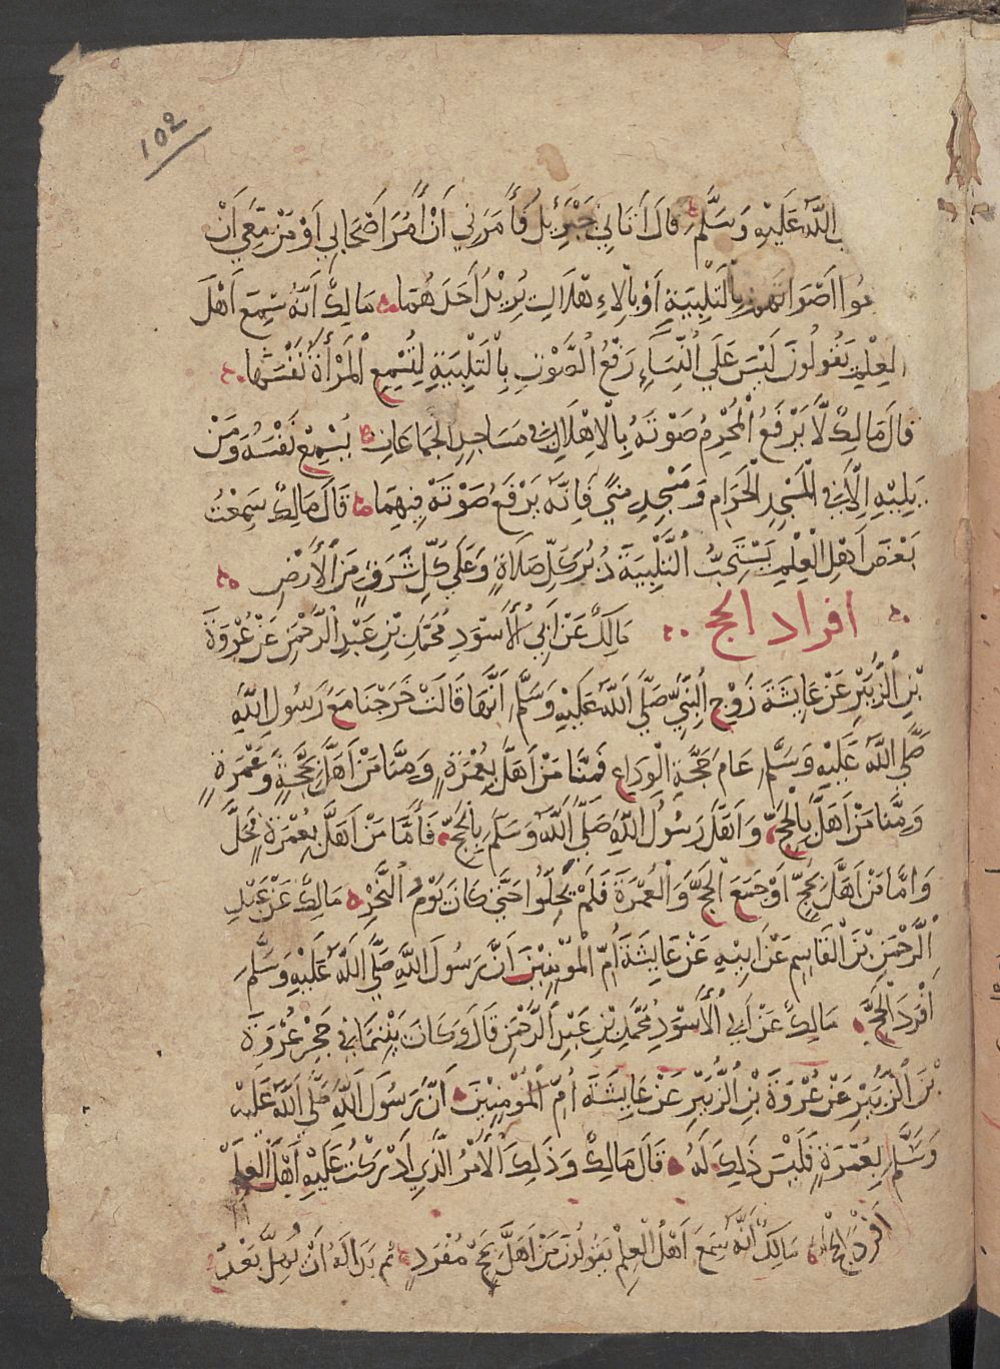 102
الله عَلَيْهِ وَسَلَّمَ قَالَ أَتَانِي جَبْرَئِيلُ فَأَمَرَنِي أَنْ آمُرَ أَصْحَابِي أَوْ مَنْ مَعِي أَنْ
عُوا أَصْوَاتَهُمْ بِالتَّلْبِيَةِ أَوْ بِالْإِهْلَالِ يُرِيدُ أَحَدَهُمَا مَالِكٌ أَنَّهُ سَمِعَ أَهْلَ
الْعِلْمِ يَقُولُونَ لَيْسَ عَلَى النِّسَاءِ رَفْعُ الصَّوْتِ بِالتَّلْبِيَةِ لِتُسْمِعِ الْمَرْأَةُ نَفْسَهَا
قَالَ مَالِكٌ لَا يَرْفَعُ الْمُحْرِمُ صَوْتَهُ بِالْإِهْلَالِ فِي مَسَاجِدِ الْجَمَاعَاتِ يُسْمِعُ نَفْسَهُ وَمَنْ
يَلِيهِ إِلَّا فِي الْمَسْجِدِ الْحَرَامِ وَمَسْجِدِ مِنًى فَإِنَّهُ يَرْفَعُ صَوْتَهُ فِيهِمَا قَالَ مَالِكٌ سَمِعْتُ
بَعْضَ أَهْلِ الْعِلْمِ يَسْتَحِبُّ التَّلْبِيَةَ دُبُرَ كُلِّ صَلَاةٍ وَعَلَى كُلِّ شَرَفٍ مِنَ الْأَرْضِ
افراد الحج مَالِكٌ عَنْ أَبِي الْأَسْوَدِ مُحَمَّدِ بْنِ عَبْدِ الرَّحْمَنِ عَنْ عُرْوَةَ
بْنِ الزُّبَيْرِ عَنْ عَايِشَةَ زَوْجِ النَّبِيِّ صَلَّى اللَّهُ عَلَيْهِ وَسَلَّمَ أَنَّهَا قَالَتْ خَرَجْنَا مَعَ رَسُولِ اللَّهِ
صَلَّى اللَّهُ عَلَيْهِ وَسَلَّمَ عَامَ حَجَّةِ الْوَدَاعِ فَمِنَّا مَنْ أَهَلَّ بِعُمْرَةٍ وَمِنَّا مَنْ أَهَلَّ بِحَجَّةٍ وَعُمْرَةٍ
وَمِنَّا مَنْ أَهَلَّ بِالْحَجِّ وَأَهَلَّ رَسُولُ اللَّهِ صَلَّى اللَّهُ وَسَلَّمَ بِالْحَجِّ فَأَمَّا مَنْ أَهَلَّ بِعُمْرَةٍ فَحَلَّ
وَامَّا مَنْ أَهَلَّ بِحَجٍّ أَوْ جَمَعَ الْحَجَّ وَالْعُمْرَةَ فَلَمْ يَحِلُّوا حَتَّى كَانَ يَوْمُ النَّحْرِ مَالِكٌ عَنْ عَبْدِ
الرَّحْمَنِ بْنِ الْقَاسِمِ عَنْ أَبِيهِ عَنْ عَايِشَةَ أُمِّ الْمُؤْمِنِينَ أَنَّ رَسُولَ اللَّهِ صَلَّى اللَّهُ عَلَيْهِ وَسَلَّمَ
أَفْرَدَ الْحَجَّ مَالِكٌ عَنْ أَبِي الْأَسْوَدِ مُحَمَّدِ بْنِ عَبْدِ الرَّحْمَنِ قَالَ وَكَانَ يَتِيمًا فِي حَجْرِ عُرْوَةَ
بْنِ الزُّبَيْرِ عَنْ عُرْوَةَ بْنِ الزُّبَيْرِ عَنْ عَايِشَةَ أُمِّ الْمُؤْمِنِينَ أَنَّ رَسُولَ اللَّهِ صَلَّى اللَّهُ عَلَيْهِ
وَسَلَّمَ بِعُمْرَةٍ فَلَيْسَ ذَلِكَ لَهُ قَالَ مَالِكٌ وَذَلِكَ الْأَمْرُ الَّذِي أَدْرَكْتُ عَلَيْهِ أَهْلَ الْعِلْمِ
أَفْرَدَ الْحَجَّ مَالِكٌ أَنَّهُ سَمِعَ أَهْلَ الْعِلْمِ يَقُولُونَ مَنْ أَهَلَّ بِحَجٍّ مُفْرَدٍ ثُمَّ بَدَا لَهُ أَنْ يُهِلَّ بَعْدَهُ